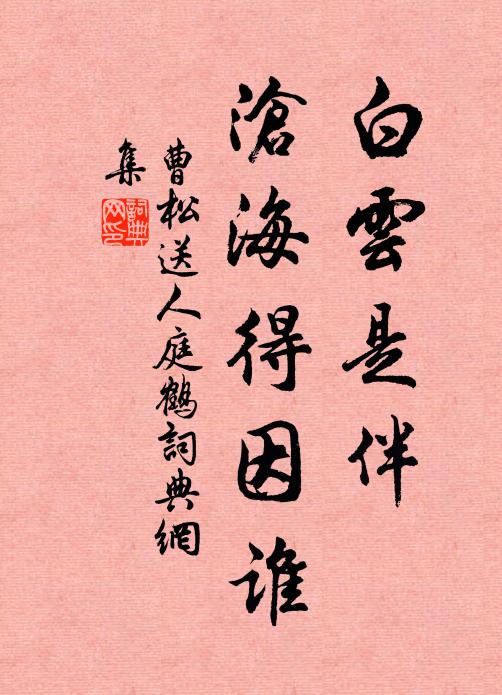 白雲是伴
滄海得因誰
曹松送人庭鶴詞典網
集
詞典網印